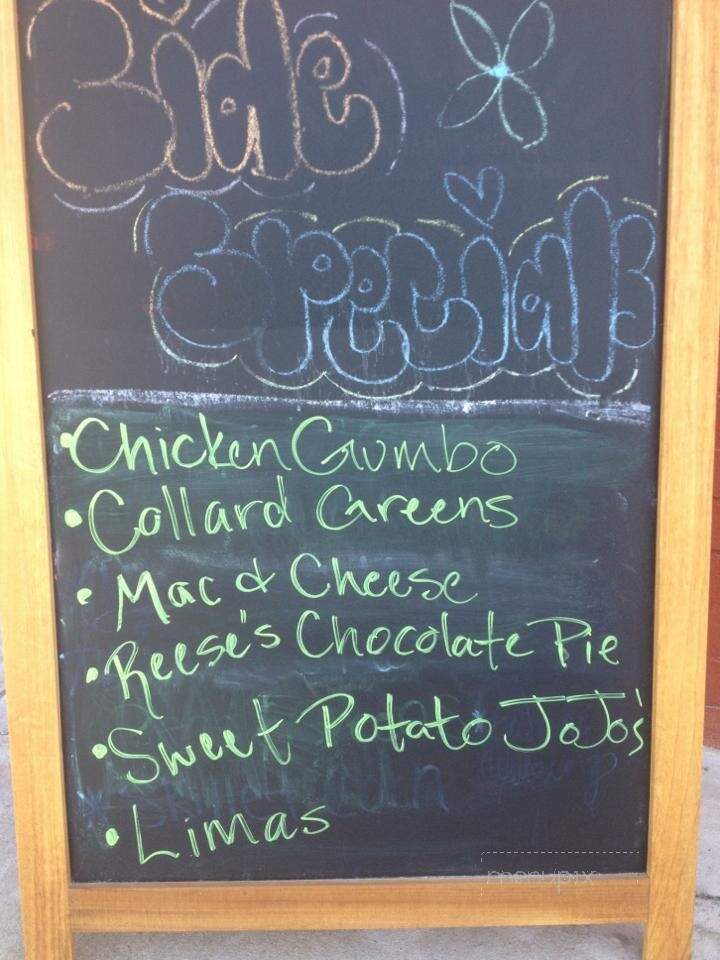 Side
Specials
• Chicken Gumbo
• Collard Greens
• Mac & Cheese
• Reese's Chocolate Pie
• Sweet Potato JoJo's
• Limas
menupix